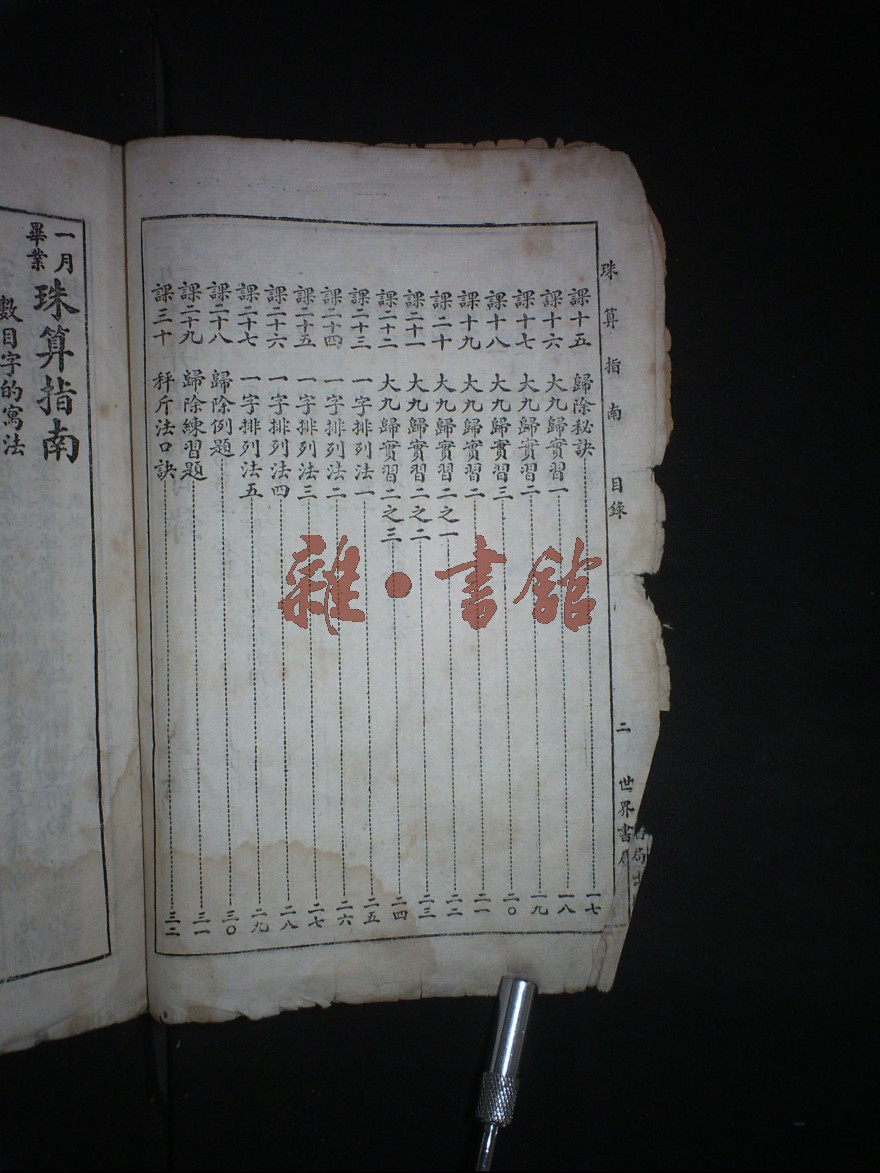 珠算指南 目錄 二 世界書局
課十五 歸除秘訣 一七
課十六 大九歸實習一 一八
課十七 大九歸實習二 一九
課十八 大九歸實習三 二〇
課十九 大九歸實習二 二一
課二十 大九歸實習二之一 二二
課二十一 大九歸實習二之二 二三
課二十二 大九歸實習二之三 二四
課二十三 一字排列法一 二五
課二十四 一字排列法二 二六
課二十五 一字排列法三 二七
課二十六 一字排列法四 二八
課二十七 一字排列法五 二九
課二十八 歸除例題 三〇
課二十九 歸除練習題 三一
課三十 秤斤法口訣 三二
一月畢業 珠算指南
數目字的寫法
雜·書館